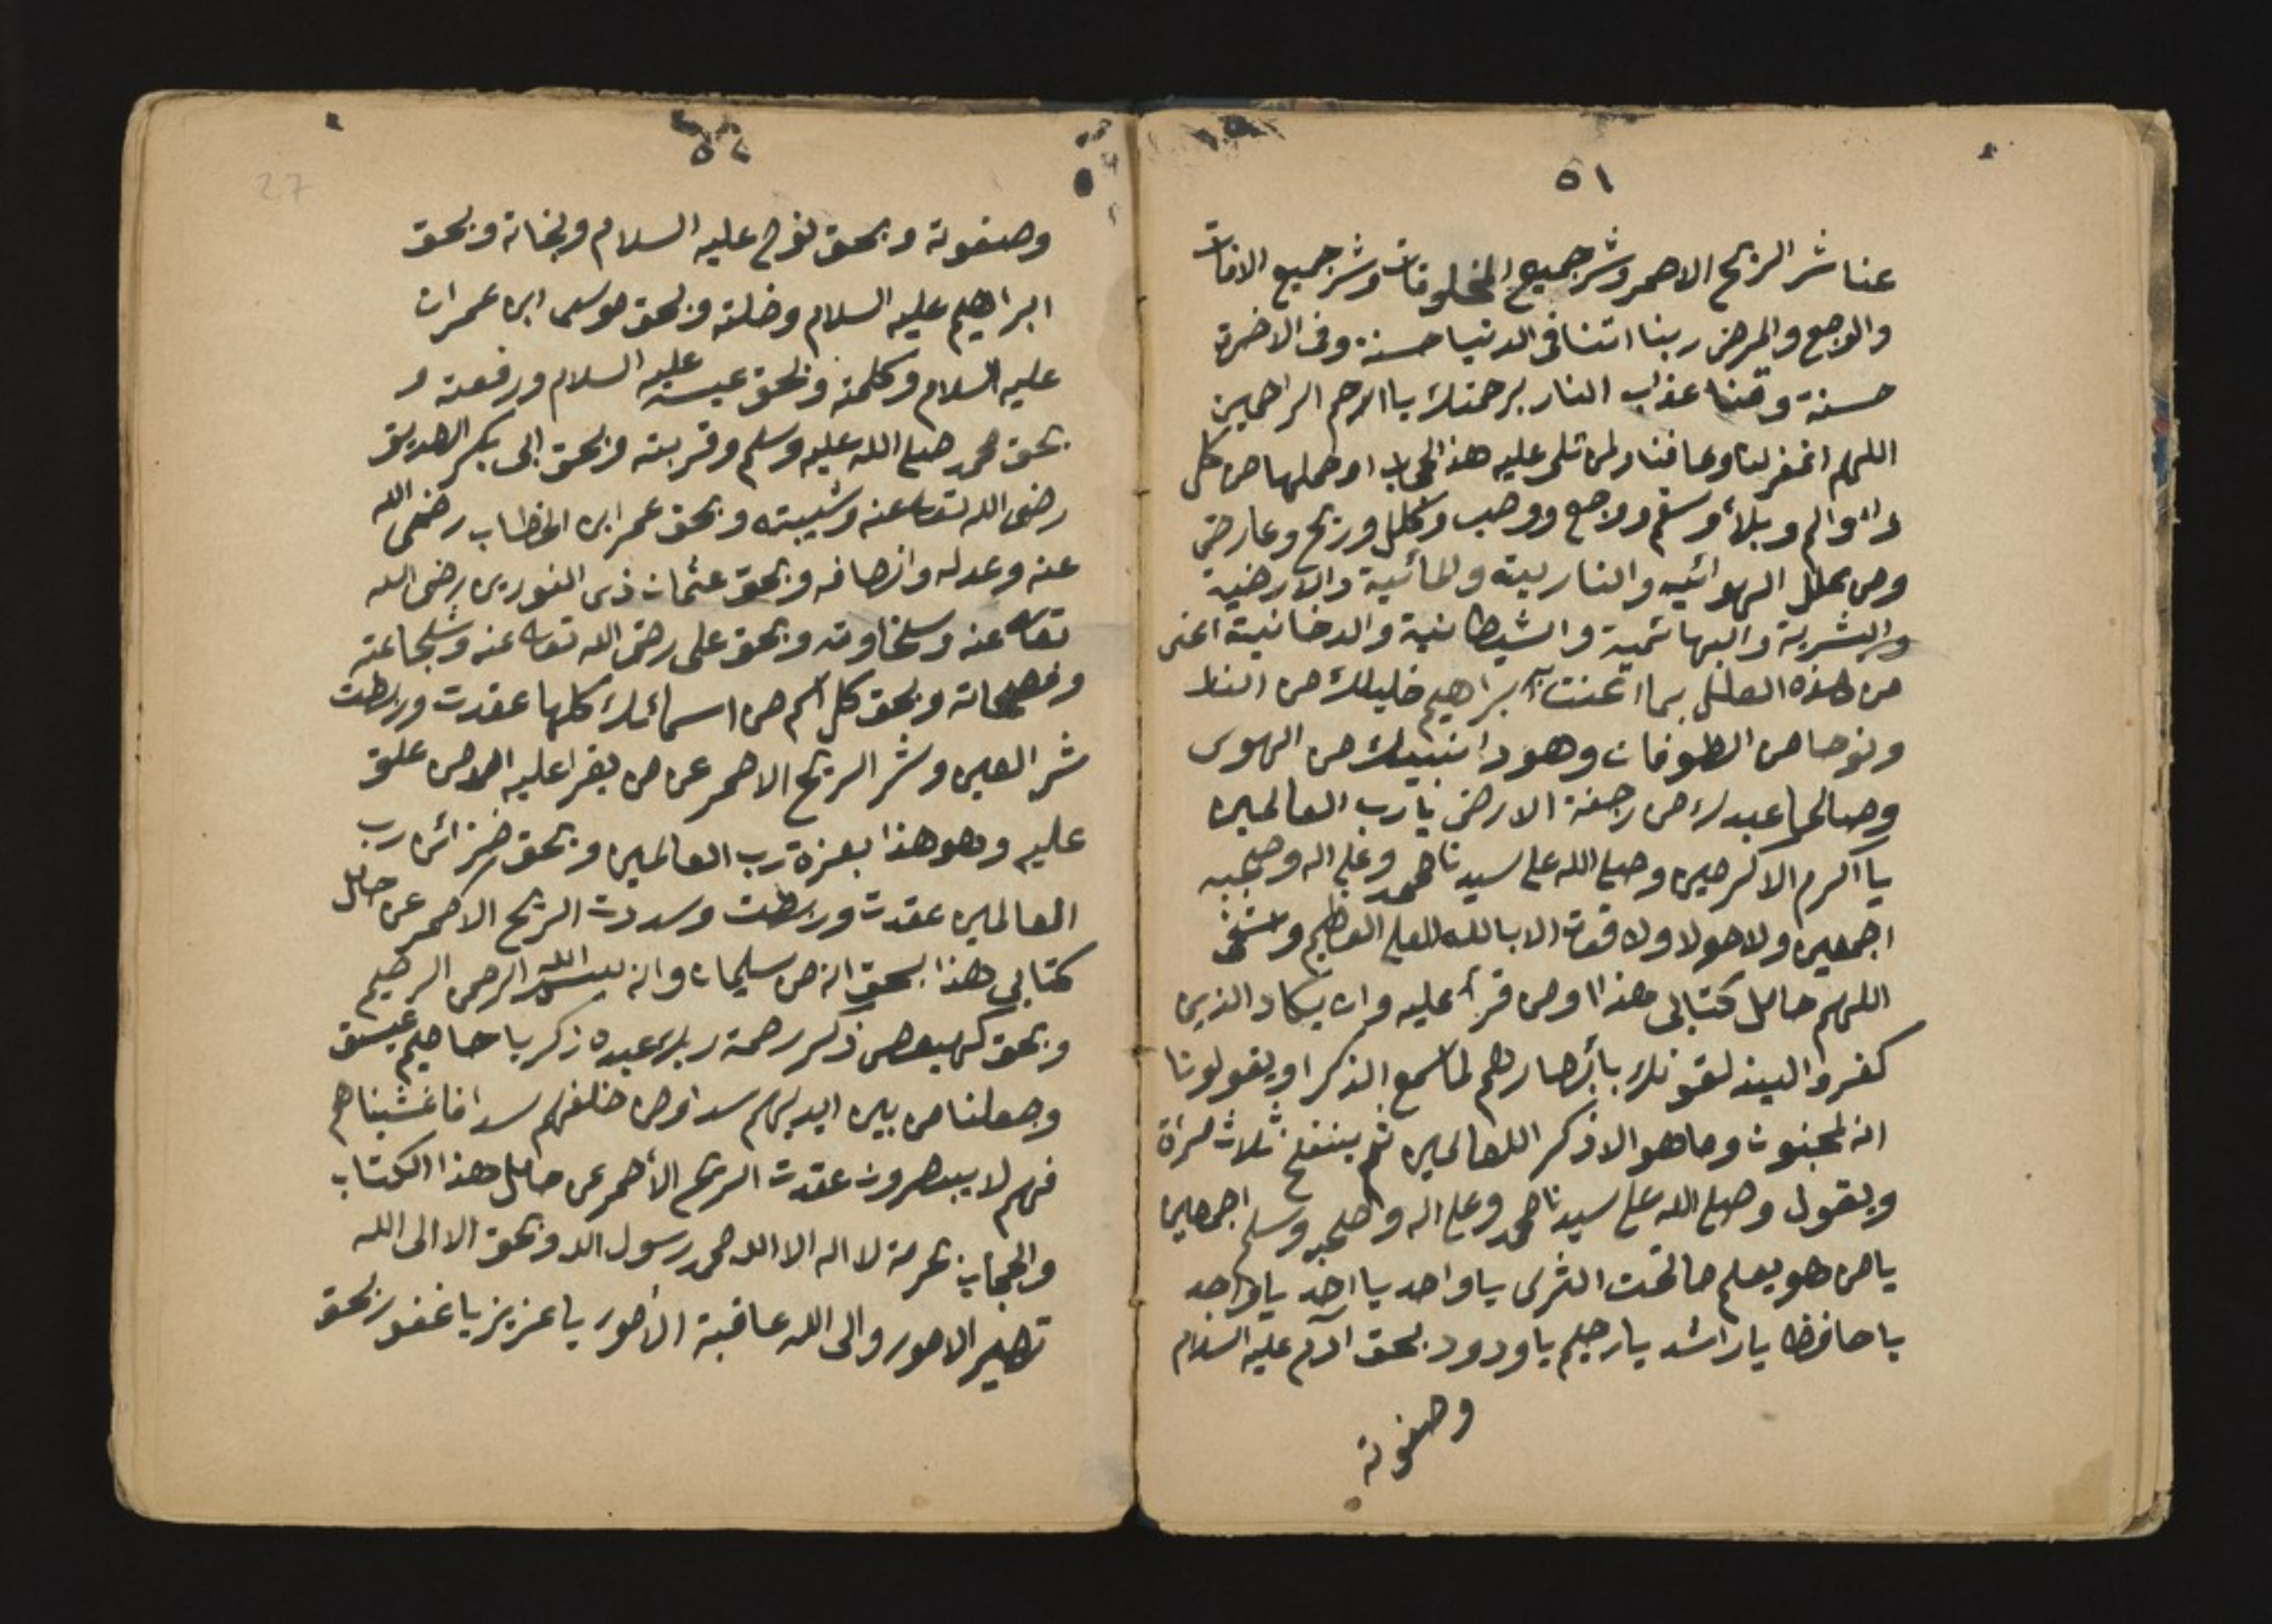 ٥١
عنا شر الريح الاحمر وشر جميع المخلوقات وشر جميع الافات
والوجع والمرض ربنا اتنا فى الدنيا حسنة وفى الاخرة
حسنة وقنا عذاب النار برحمتك يا ارحم الراحمين
اللهم اغفر لنا وعافنا ولمن تلى عليه هذا الحجاب او حملها من كل
داء والم وبلاء وسقم ووجع ووصب وكلل وريح وعارض
ومن علل الهوائيه والناريته والمائية والارضية
والبشرية والبهائمية والشيطانية والدخانية اغنى
من هذه العلل بما اغنت ابراهيم خليلك من النار
ونوحا من الطوفان وهودا نبيك من الهوى
وصالحا عبدك من رجفة الارض يا رب العالمين
يا اكرم الاكرمين وصلى الله على سيدنا محمد وعلى اله وصحبه
اجمعين ولا حولا ولا قوة الا بالله العلى العظيم واشفى
اللهم حامل كتابى هذا اومن قرأ عليه وان يكاد الذين
كفروا ليذلقونك بأبصارهم لما سمع الذكر اويقولونا
انه لمجنون وما هو الا ذكر اللعالمين ثم ينفخ ثلاث مرة
ويقول وصلى الله على سيدنا محمد وعلى اله واصحبه وسلم اجمعين
يا من هو يعلم ما تحت الثرى يا واحد يا احد يا واجد
يا حافظ يا راشد يا رحيم يا ودود بحق آدم عليه السلام
وصفوته
٥٢
27
وصفوته وبحق نوح عليه السلام ونجاته وبحق
ابراهيم عليه السلام وخلته وبحق موسى ابن عمران
عليه السلام وكلمته وبحق عيسى عليه السلام ورفعته و
بحق محمد صلى الله عليه وسلم وقربته وبحق ابى بكر الصديق
رضى الله تعالى عنه وشيبته وبحق عمر ابن الخطاب رضى الله
عنه وعدله وانصافه وبحق عثمان ذى النورين رضى الله
تعالى عنه وسخاوته وبحق على رضى الله تعالى عنه وشجاعته
وفصحاته وبحق كل اسم من اسمائك كلها عقدت وربطت
شر العين وشر الريح الاحمر عن من يقرا عليه اومن علق
عليه وهو هذا بعزة رب العالمين وبحق خزائن رب
العالمين عقدت وربطت وسددت الريح الاحمر عن حامل
كتابى هذا بحق انه من سليمان وانه بسم الله الرحمن الرحيم
وبحق كهيعص ذكر رحمة ربك عبده زكريا حاميم عيسق
وجعلنا من بين ايديهم سدا ومن خلفهم سدا فاغشيناهم
فهم لا يبصرون عقدت الريح الأحمر عن حامل هذا الكتاب
والحجاب بحرمة لا اله الا الله محمد رسول الله وبحق الا الى الله
تصير الامور والى الله عاقبة الأمور يا عزيز يا غفور بحق